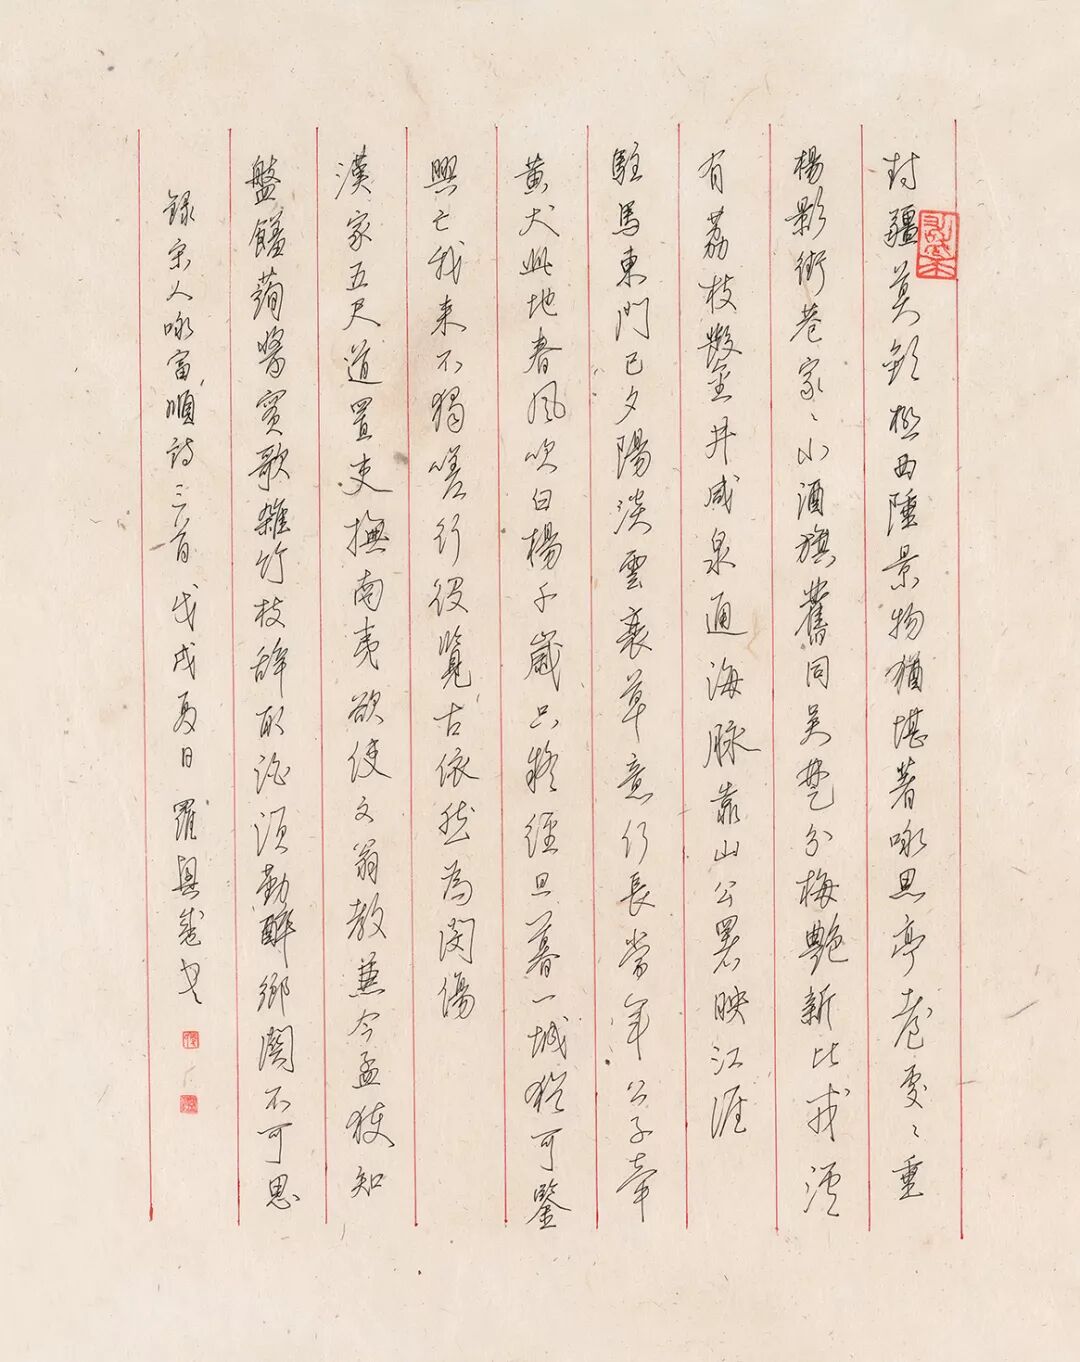 封疆莫欸極西陲景物猶堪著咏思亭巷處〻垂
楊影街巷家〻小酒旗舊同吳楚分梅艷新比戎瀘
有荔枝鑿金井咸泉通海脉靠山公署映江涯
駐馬東門已夕陽淡雲衰草意何長當年公子牽
黄犬此地春風吹白楊千歲只疑經旦暮一城猶可鑒
興亡我来不獨嗟行役覽古依然為閔傷
漢家五尺道置吏撫南夷欲使文翁教兼令孟獲知
盤饈蒟醬實歌雜竹枝辭取酒須勤醉鄉關不可思
録宋人咏富順詩三首戊戌夏日羅